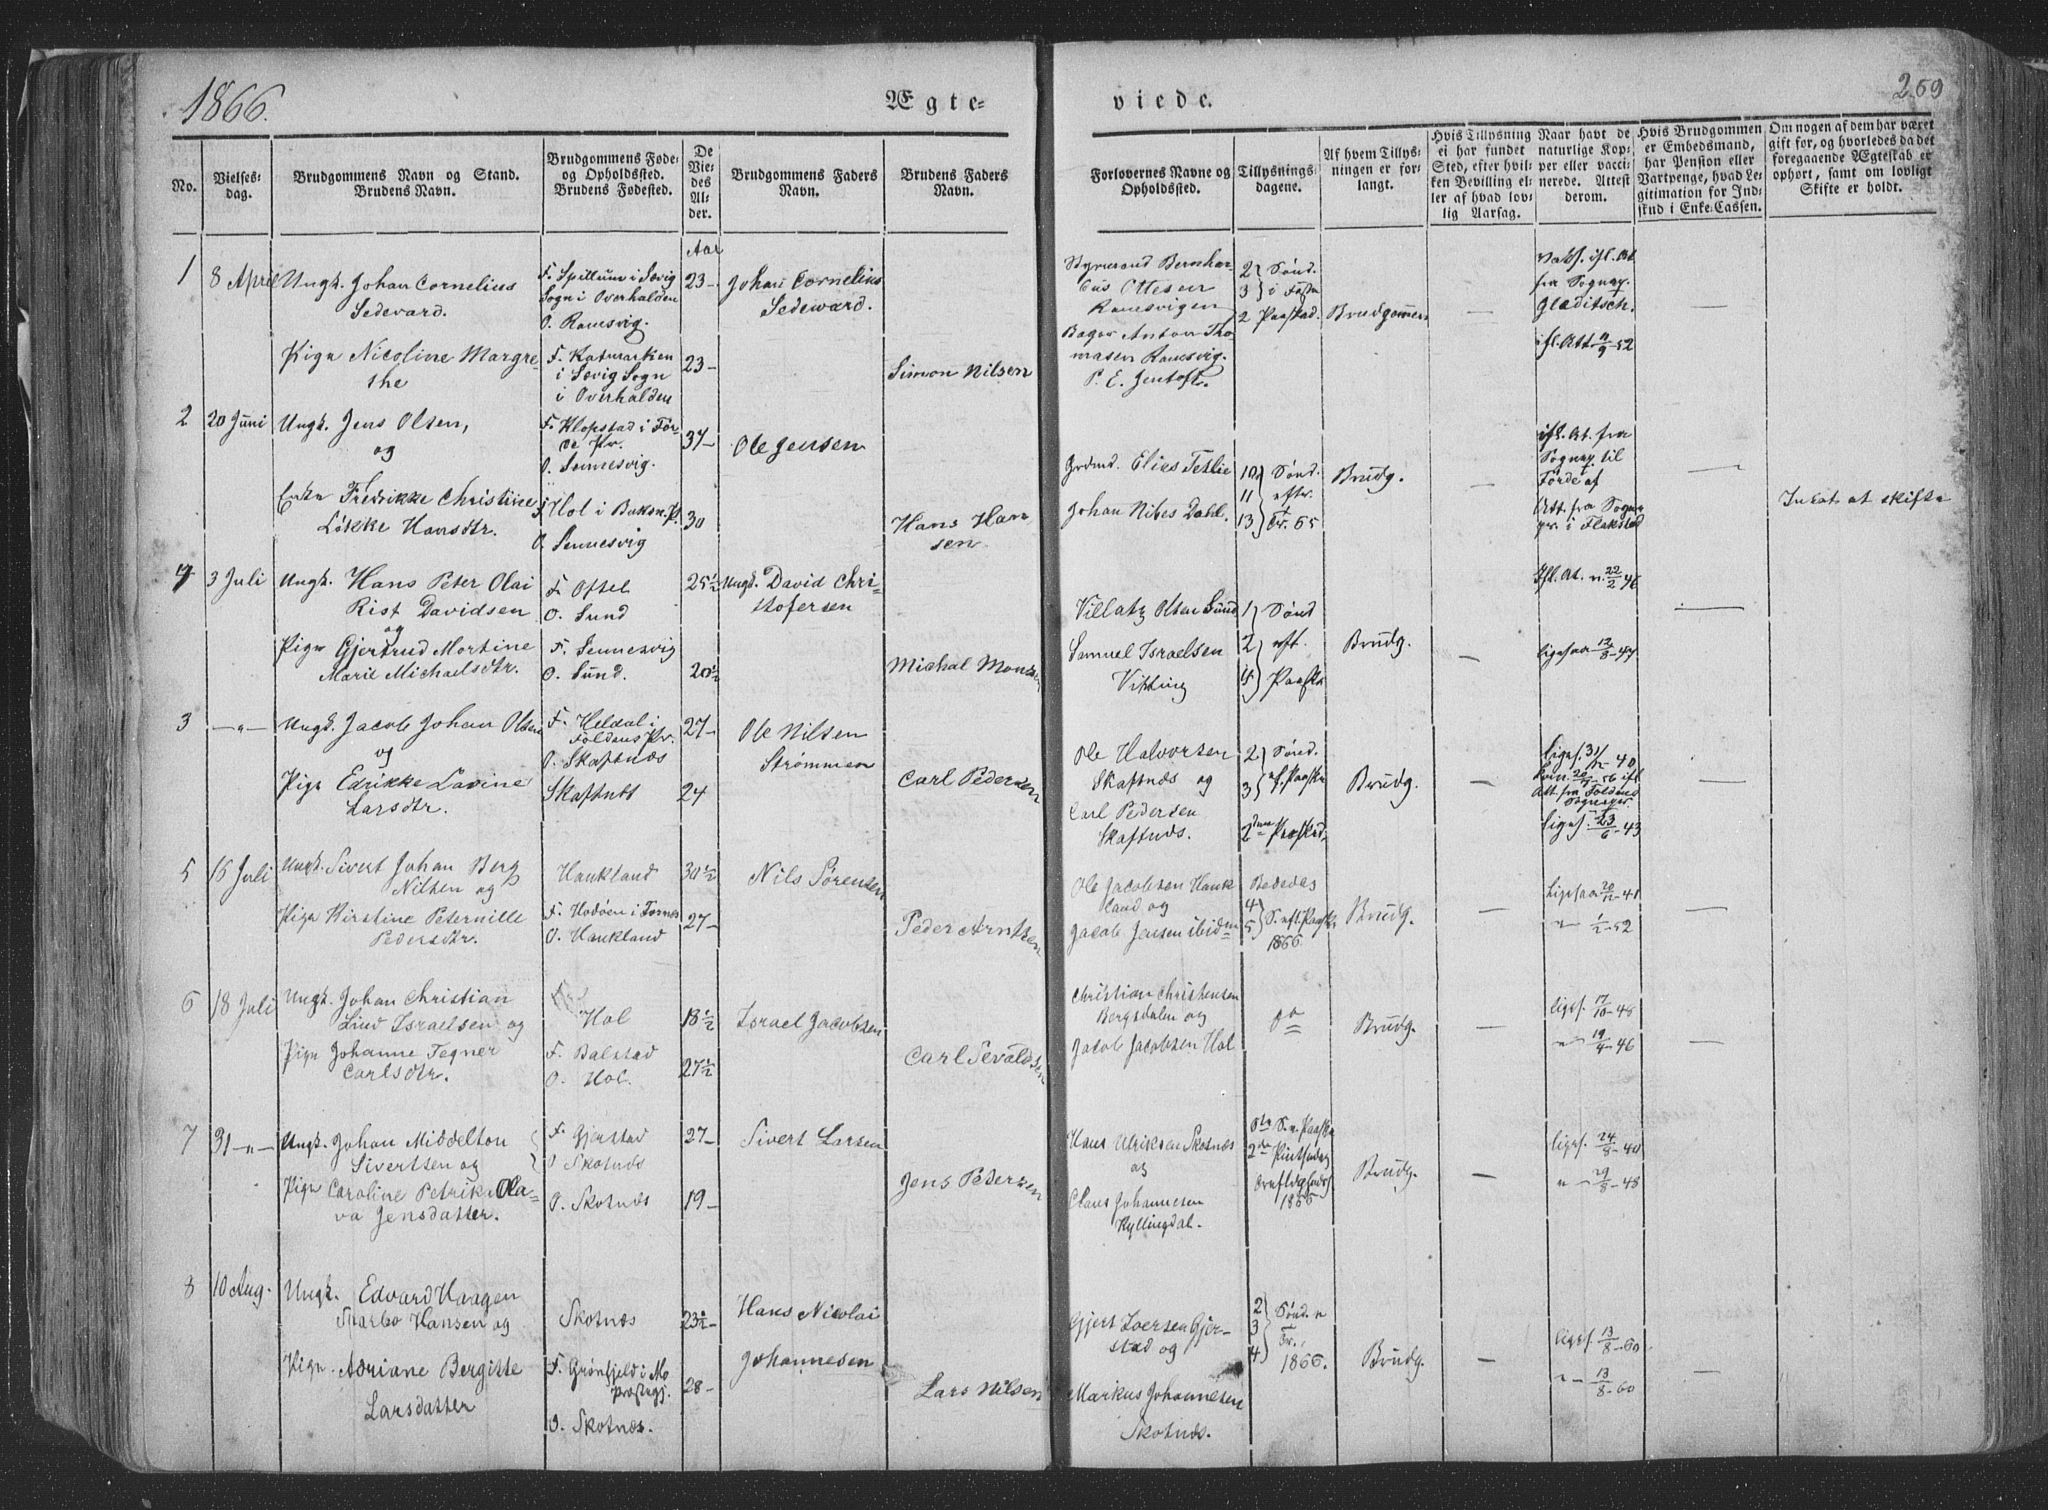 1866.
Ægte-
viede.
259
No.
Vielses-
dag.
Brudgommens Navn og Stand.
Brudens Navn.
Brudgommens Føde-
og Opholdssted.
Brudens Fødested.
De
Vie-
des
Al-
der.
Brudgommens Faders
Navn.
Brudens Faders
Navn.
Forlovernes Navne og
Opholdssted.
Tillysnings-
dagene.
Af hvem Tillys-
ningen er for-
langt.
Hvis Tillysning
ei har fundet
Sted, efter hvil-
ken Bevilling el-
ler af hvad lov-
lig Aarsag.
Naar havt de
naturlige Kop-
per eller vacci-
nerede. Attest
derom.
Hvis Brudgommen
er Embedsmand,
har Pension eller
Vartpenge, hvad Le-
gitimation for Ind-
skud i Enke-Cassen.
Om nogen af dem har været
gift før, og hvorledes da det
foregaaende Ægteskab er
ophørt, samt om lovligt
Skifte er holdt.
Aar
1
8 April
Ungk. Johan Cornelius
Sedevard.
Pige Nicoline Margre-
the
F. Spillum i Sævig
Sogn i Overhalden
O. Ramsvig.
F. Katmarken
i Sævig Sogn
i Overhalden
23-
23-
Johan Cornelius
Sedeward.
Simon Nilsen
Bernhar-
dus Ottesen
Ramsvigen
Anton Tho-
masen Ramsvig.
P. E. Jentoft.
2 } Sønd.
3 } i Faste
2 Paaskd.
Brudgommen
—
Vaks. ifl. At
fra Sognep.
Gladitsch.
ifl. Att 11/9-52
2
20 Juni
Ungk. Jens Olsen,
og
Enke Fredrikke Christine
Løkke Hansdtr.
F. Klopstad i Før-
de Pr.
O. Sennesvig.
F. Hol i Buksn. Pr.
O. Sennesvig
37-
30
Ole Jensen
Hans Han-
sen
Grdmd. Elias Tetlie
Johan Nibes Dahl.
10 } Sønd.
11 } eftr.
13 } Tr. 65
Brudg.
—
ifl. At. fra
Sognep. til
Førde af
Att. fra Sogne-
pr. i Flakstad
—
Intet at skifte
4
3 Juli
Ungk. Hans Peter Olai
Rist Davidsen
og
Pige Gjertrud Mortine
Marie Michaelsdtr.
F. Oftel
O. Sund
F. Sennesvig
O. Sund.
25 1/2
20 1/2
Ungk. David Chri-
stofersen
Michal Monsen
Villatz Olsen Sund
Samuel Israelsen
Vikting
1 } Sønd
2 } eft.
4 } Paaske
Brudg.
—
Ifl. At. n. 22/2 46
ligesaa 12/8-47
—
3
—"—
Ungk. Jacob Johan Olsen
og
Pige Edrikke Lovine
Larsdtr.
F. Heldal i
Foldens Pr.
O. Skaftnæs
Skaftnæs
27-
24
Ole Nilsen
Strømmen
Carl Pedersen
Ole Halvorsen
Skaftnæs og
Carl Pedersen
Skaftnæs.
2 } Sønd.
3 } ef. Paaske
2den Paaskd.
Brudg.
—
Ligesf. 31/12-40
20/9-56 ifl
Att. fra Foldens
Sognepr.
Ligesf. 23/6-43
—
5
15 Juli
Ungk. Sivert Johan Berg
Nilsen og
Pige Kirstine Pernille
Pedersdtr.
Haukland
F. Hodøen i
O. Haukland
30 1/2
27-
Nils Sørensen
Peder Arntsen
Ole Jacobsen Hauk-
land og
Jacob Jensen ibidm
Bededag
4 }
5 } S. eft. Paaske
1866
Brudg.
—
Ligesaa 20/12-41
"- 1/2-52
—
6
18 Juli
Ungk. Johan Christian
Lind Israelsen og
Pige Johanne Tegner
Carlsdtr.
F.
Hol
F. Balstad
O. Hol.
18 1/2
27 1/2
Israel Jacobsen
Carl Sevaldsen
Christian Christensen
Bergsdalen og
Jacob Jacobsen Hol
do
Brudg.
—
ligesf. 17/10-48
"- 19/4-46
7
31-"-
Ungk. Johan Middelton
Sivertsen og
Pige Caroline Petrikke Ola-
va Jensdatter.
F. Gjerstad
O Skotnæs
O. Skotnæs
27-
19-
Sivert Larsen
Jens Petersen
Hans Ulriksen Skotnæs
og
Claus Johannesen
Kyllingdal.
6te S. e. Paaske
2den Pintsedag
1866
Brudg.
—
ligesf. 24/8-40
"- 29/8-48
—
8
10 Aug.
Ungk. Edvard Haagen
Skarbo Hansen og
Pige Adriane Bergitte
Larsdatter
Skotnæs
F. Grønfjeld i Mo
Præsteg.
O. Skotnæs.
23 1/2-
28-
Hans Nicolai
Johannesen
Lars Nilsen
Gjert Loersen Gjer-
stad og
Markus Johannesen
Skotnæs.
2 } Sønd. e
3 } Tr.
4 } 1866.
Brudg.
—
ligesf. 13/8-60
"- 13/8-60
—